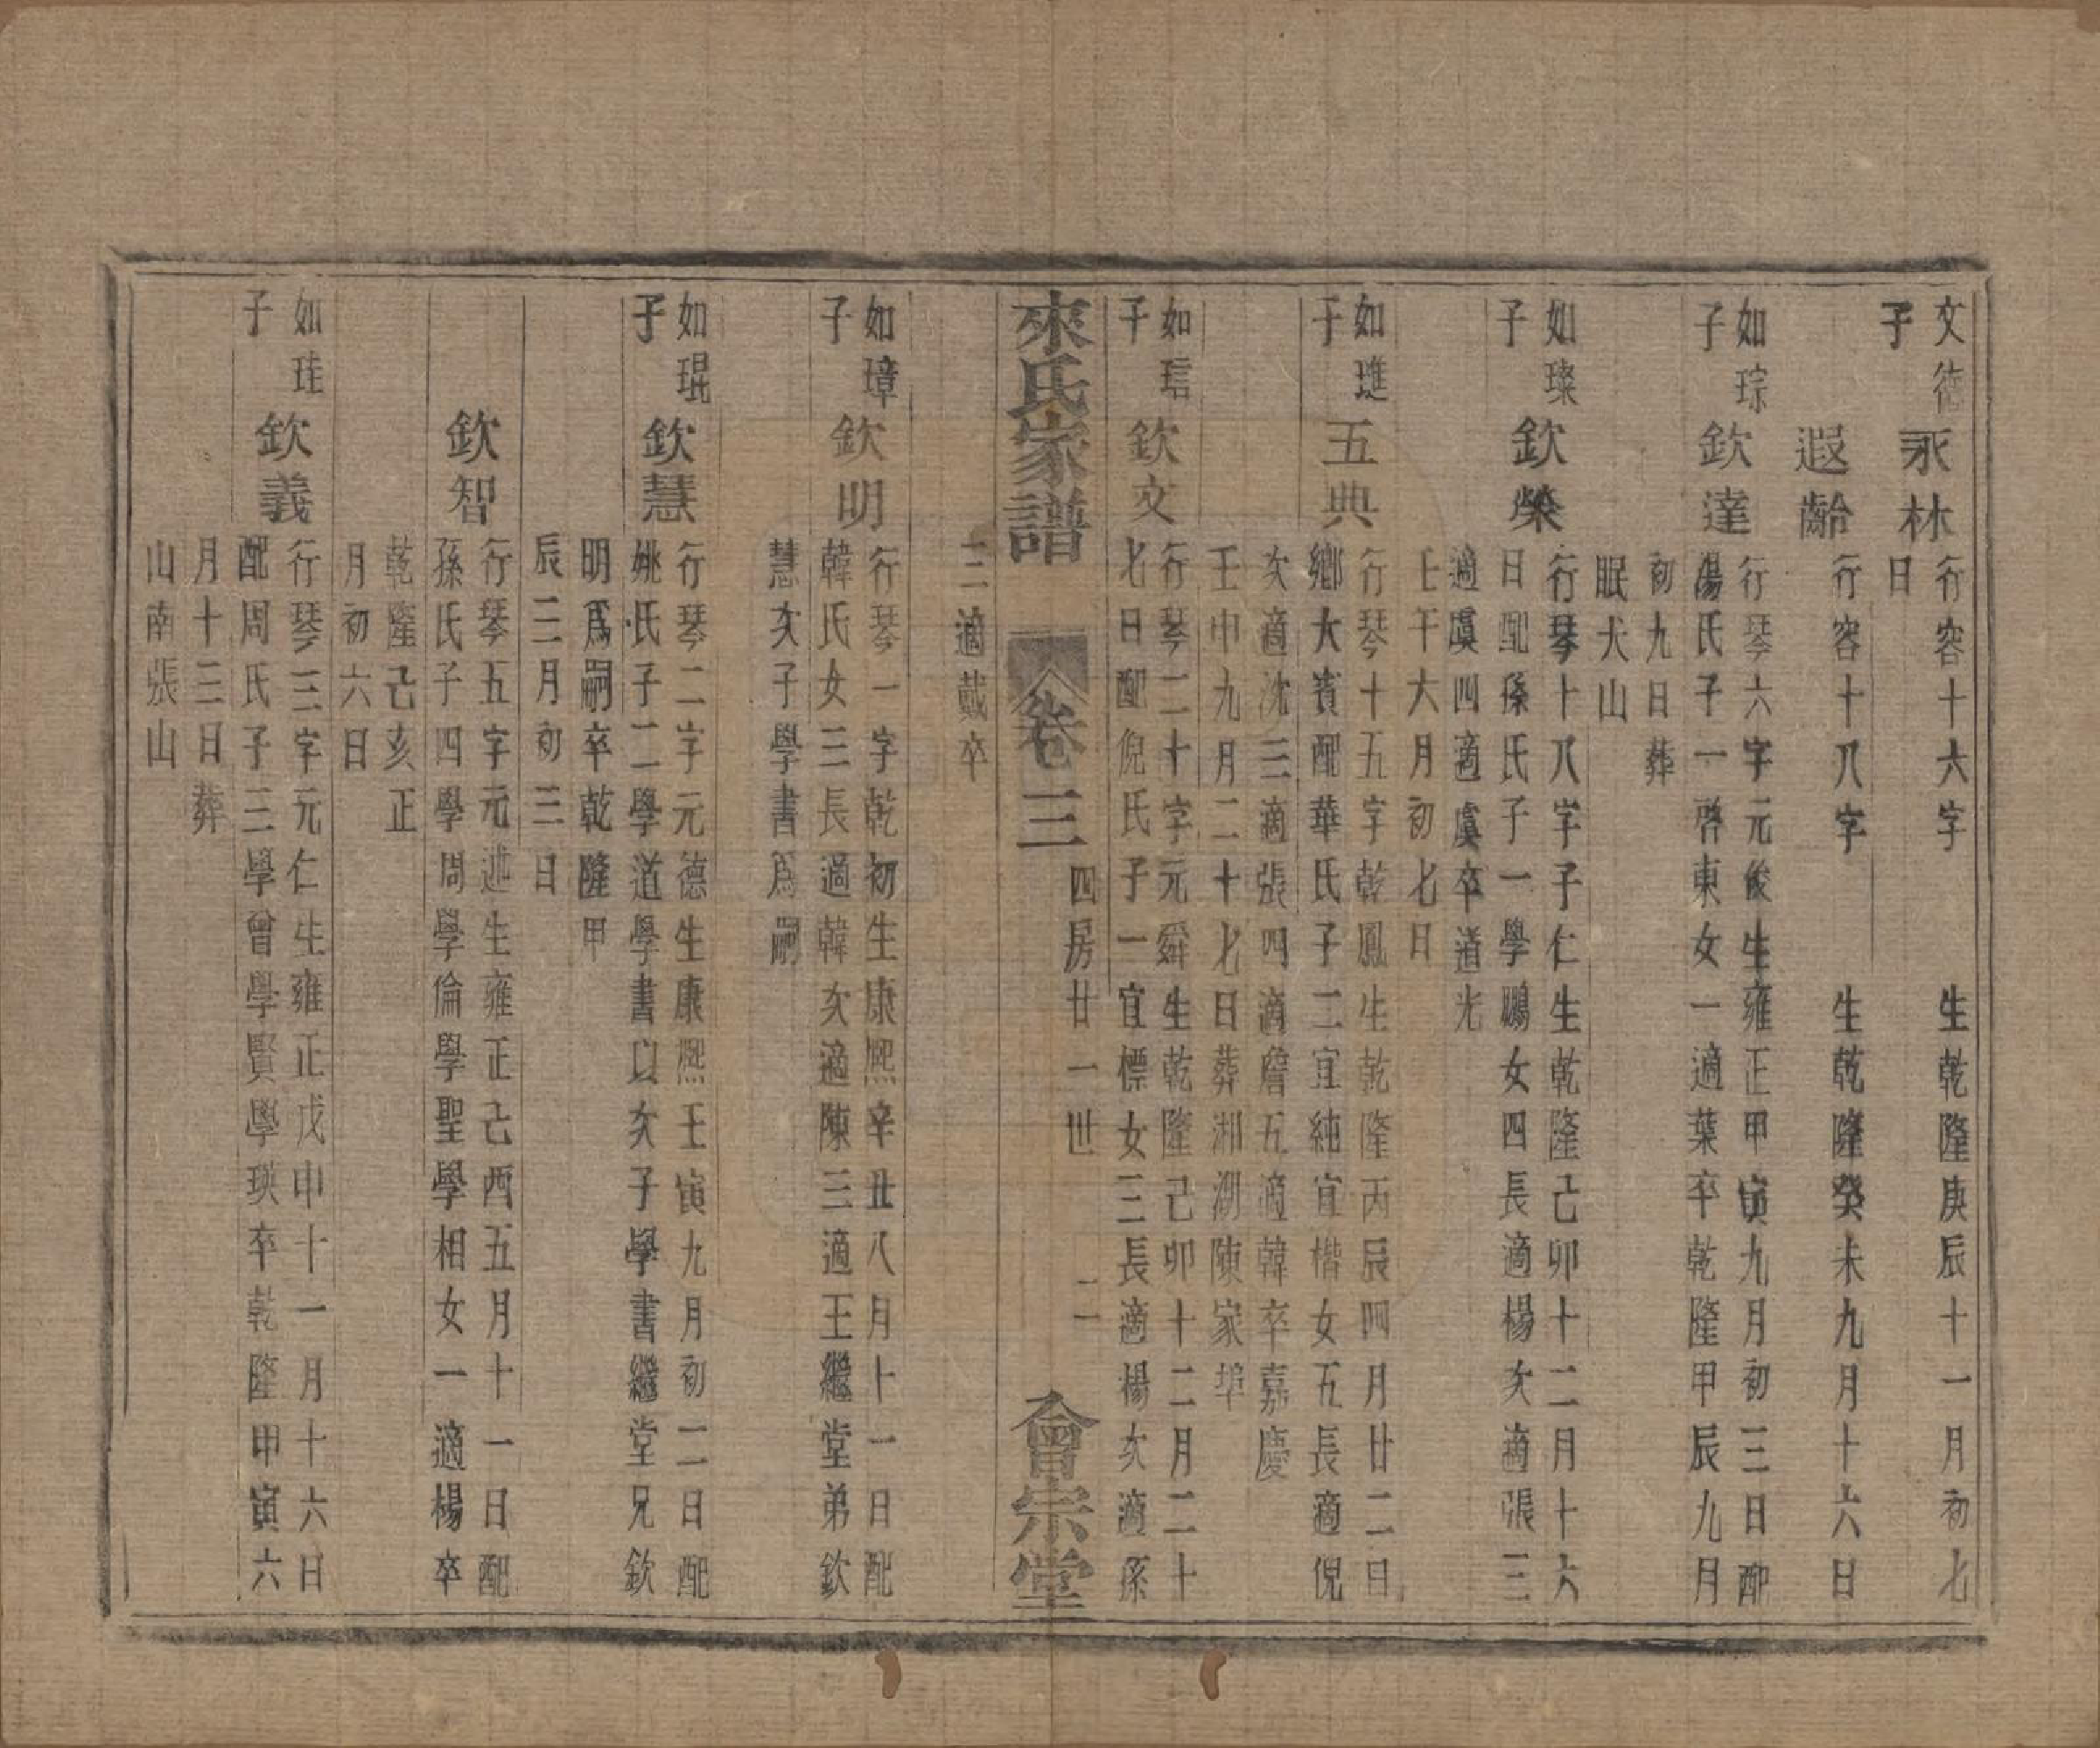 文德
子
永林
行容十六字　生乾隆庚辰十一月初七
日
遐齡
行容十八字　生乾隆癸未九月十六日
如琮
子
欽達
行琴六字元俊生雍正甲寅九月初三日配
湯氏子一啓東女一適葉卒乾隆甲辰九月
初九日葬
眠犬山
如璨
子
欽榮
行琴十八字子仁生乾隆己卯十二月十六
日配孫氏子一學鵬女四長適楊次適張三
適虞四適虞卒道光
壬午六月初七日
如璡
子
五典
行琴十五字乾鳳生乾隆丙辰四月廿二日
鄉大賓配華氏子二宜純宜楷女五長適倪
次適沈三適張四適詹五適韓卒嘉慶
壬申九月二十七日葬湘湖陳家埠
如琂
子
欽文
行琴二十字元舜生乾隆己卯十二月二十
七日配倪氏子一宜標女三長適楊次適孫
來氏家譜
卷三
四房廿一世
二
會宗堂
三適戴卒
如璋
子
欽明
行琴一字乾初生康熙辛丑八月十一日配
韓氏女三長適韓次適陳三適王繼堂弟欽
慧次子學書爲嗣
如琨
子
欽慧
行琴二字元德生康熙壬寅九月初二日配
姚氏子二學道學書以次子學書繼堂兄欽
明爲嗣卒乾隆甲
辰三月初三日
欽智
行琴五字元述生雍正己酉五月十一日配
孫氏子四學周學倫學聖學相女一適楊卒
乾隆己亥正
月初六日
如珪
子
欽義
行琴三字元仁生雍正戊申十一月十六日
配周氏子三學曾學賢學瑛卒乾隆甲寅六
月十三日葬
山南張山